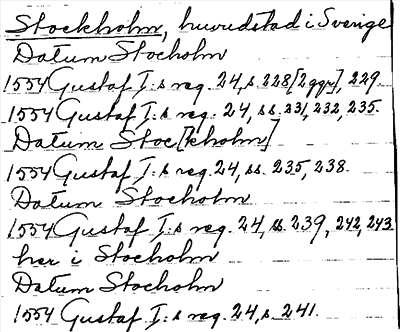 Stockholm, huvudstad i Sverige
Datum Stocholm
1554 Gustaf I:s reg. 24, s. 228 [2 ggr], 229.
1554 Gustaf I:s reg. 24, ss. 231, 232, 235.
Datum Stoc[kholm]
1554 Gustaf I:s reg. 24, ss. 235, 238.
Datum Stocholm
1554 Gustaf I:s reg. 24, ss. 239, 242, 243
her i Stocholm
Datum Stocholm
1554 Gustaf I:s reg. 24, s. 241.